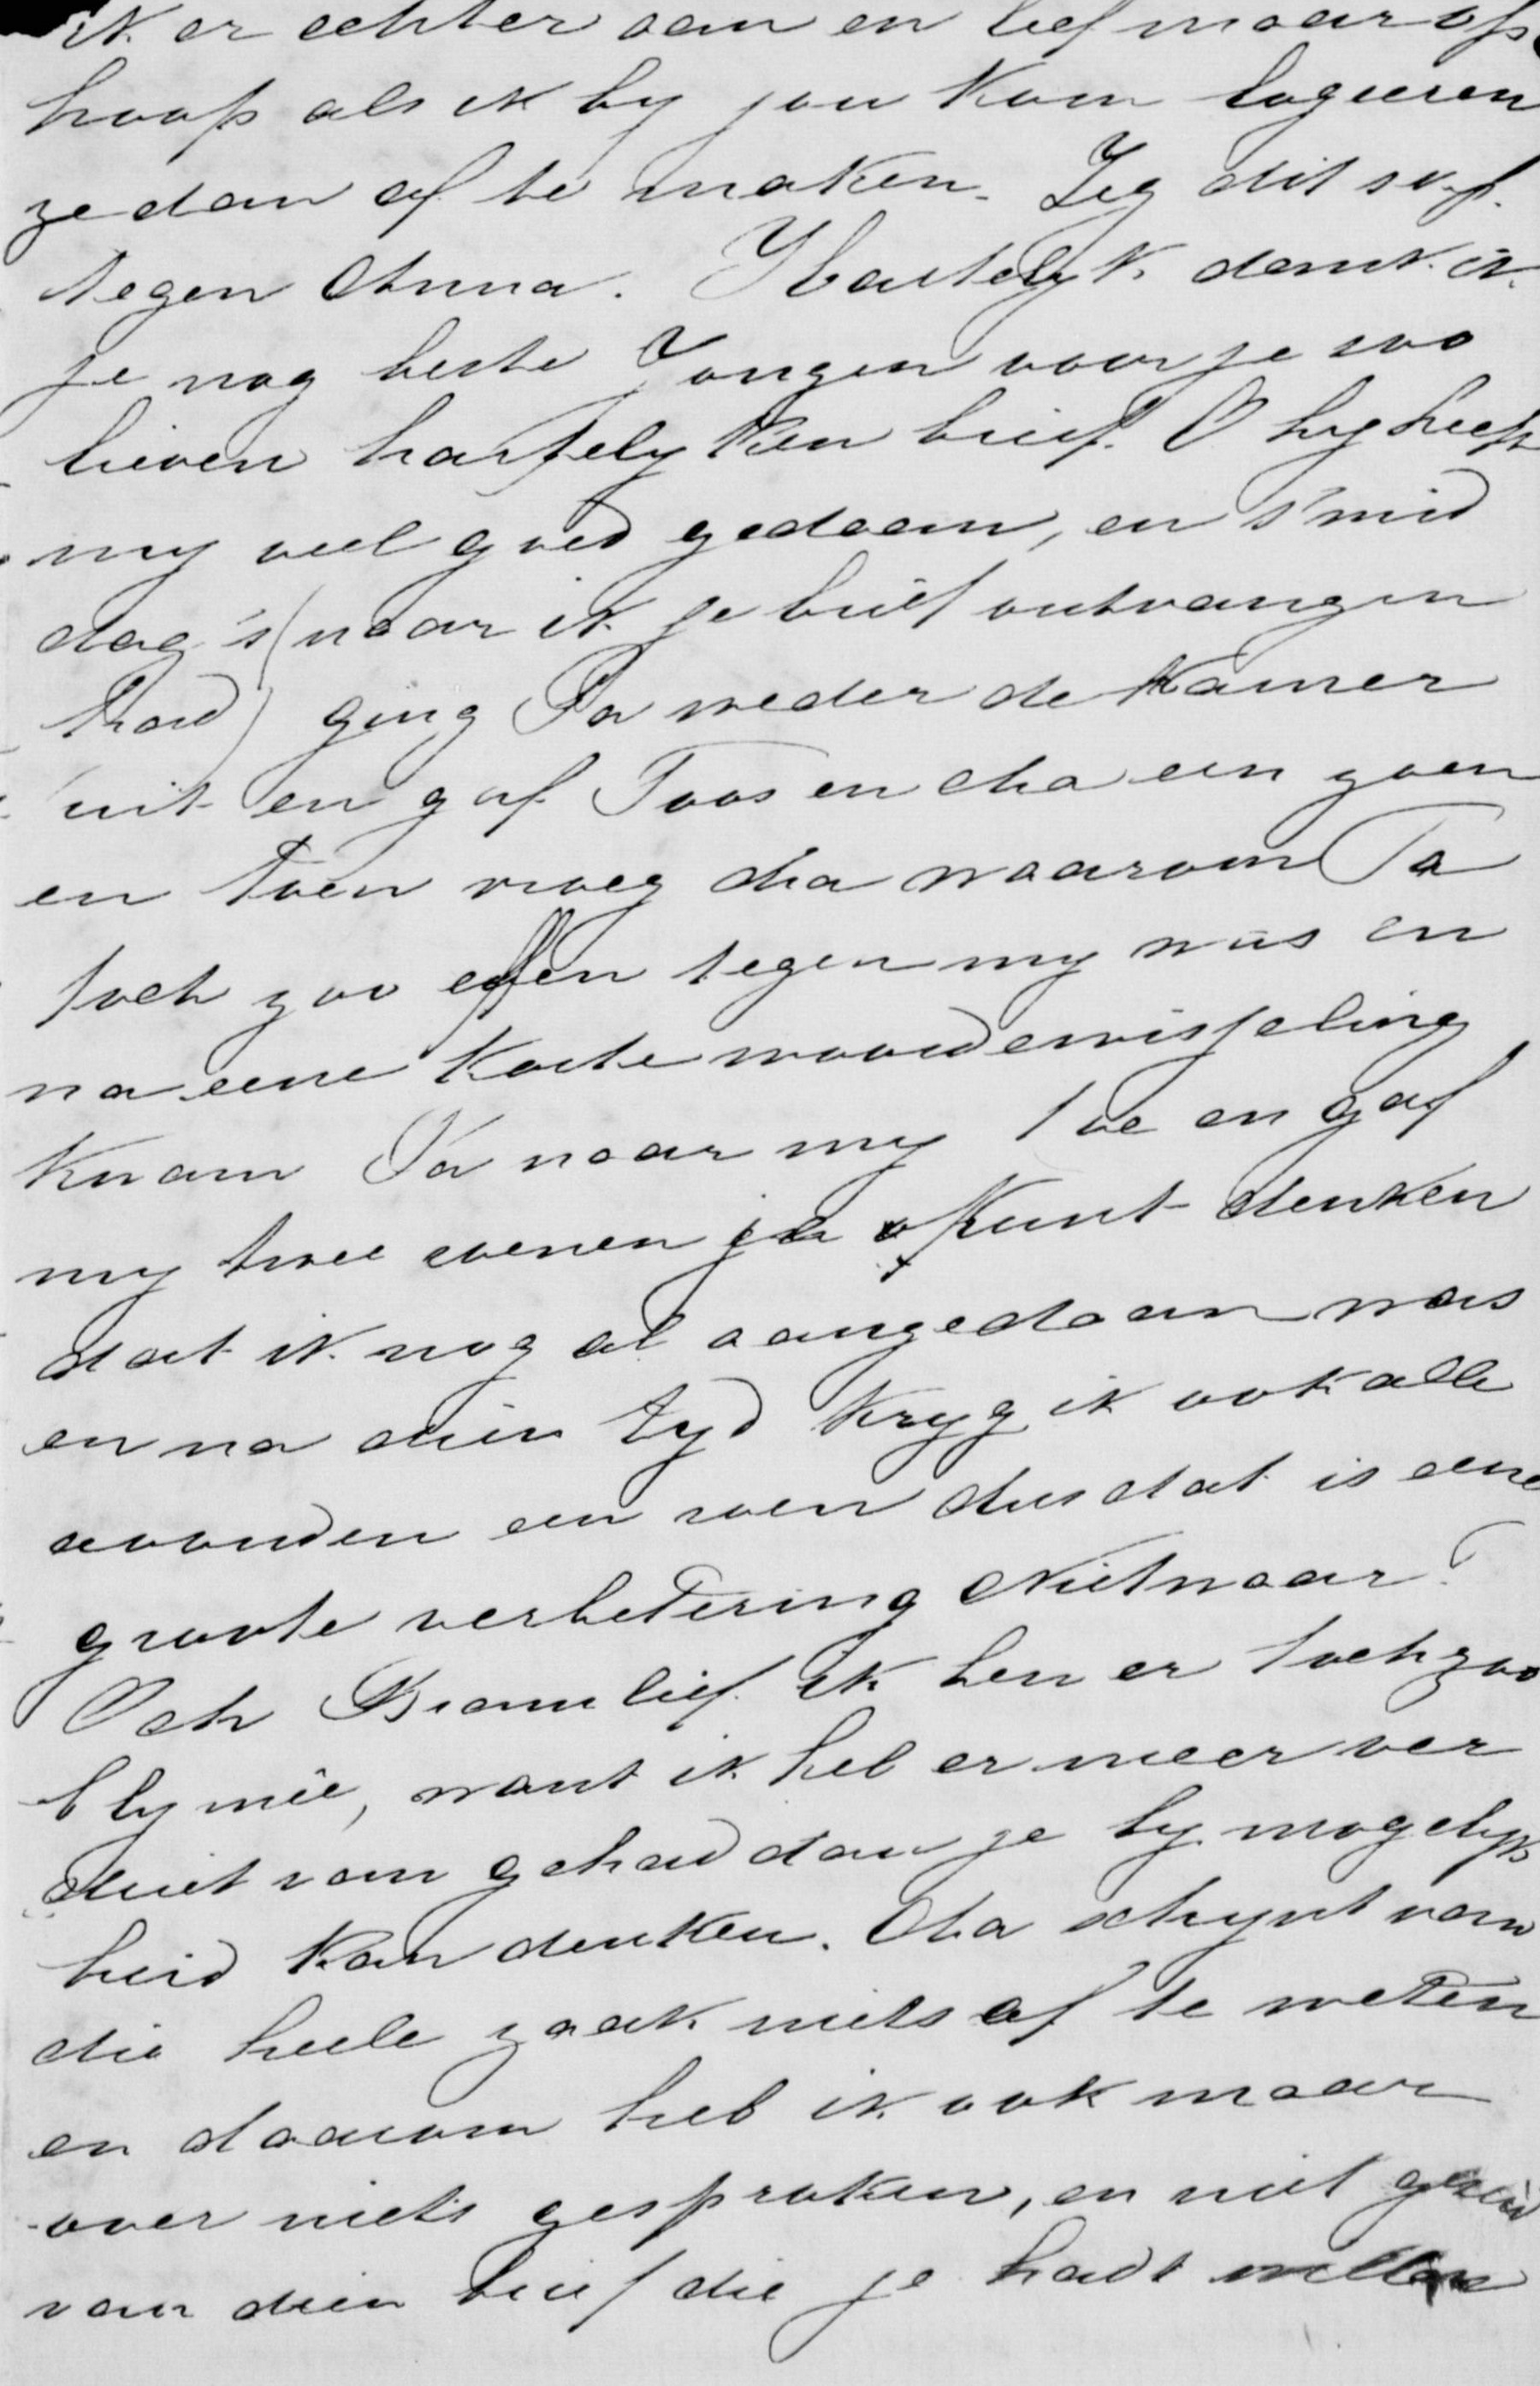 ik er achter aan en leef maar op
hoop als ik by jou kom logeeren
ze dan af te maken. Zeg dit svp.
tegen Anna. Hartelyk dank ik
je nog beste Jongen voor je zoo
lieven hartelyken brief. O hy heeft
my veel goed gedaan, en s'mid
dag's (waar ik je brief ontvangen
had) ging Pa weder de kamer
uit en gaf Toos en Ma een zoen
en toen vroeg Ma waarom Pa
toch zoo effen tegen my was en
na eene korte woordenwisseling
kwam Pa naar my toe en gaf
my twee zoenen je kunt denken
dat ik nog al aangedaan was
en na dien tyd kryg ik ook alle
avonden een zoen dus dat is eene
groote verbetering Nietwaar?
Och Bramlief ik ben er toch zoo
bly meê, want ik heb er meer ver
driet van gehad dan je by mogelyk
heid kan denken. Ma schynt van
die heele zaak niets af te weten
en daarom heb ik ook maar
over niets gesproken, en niet gerept
van dien brief die je hadt willen